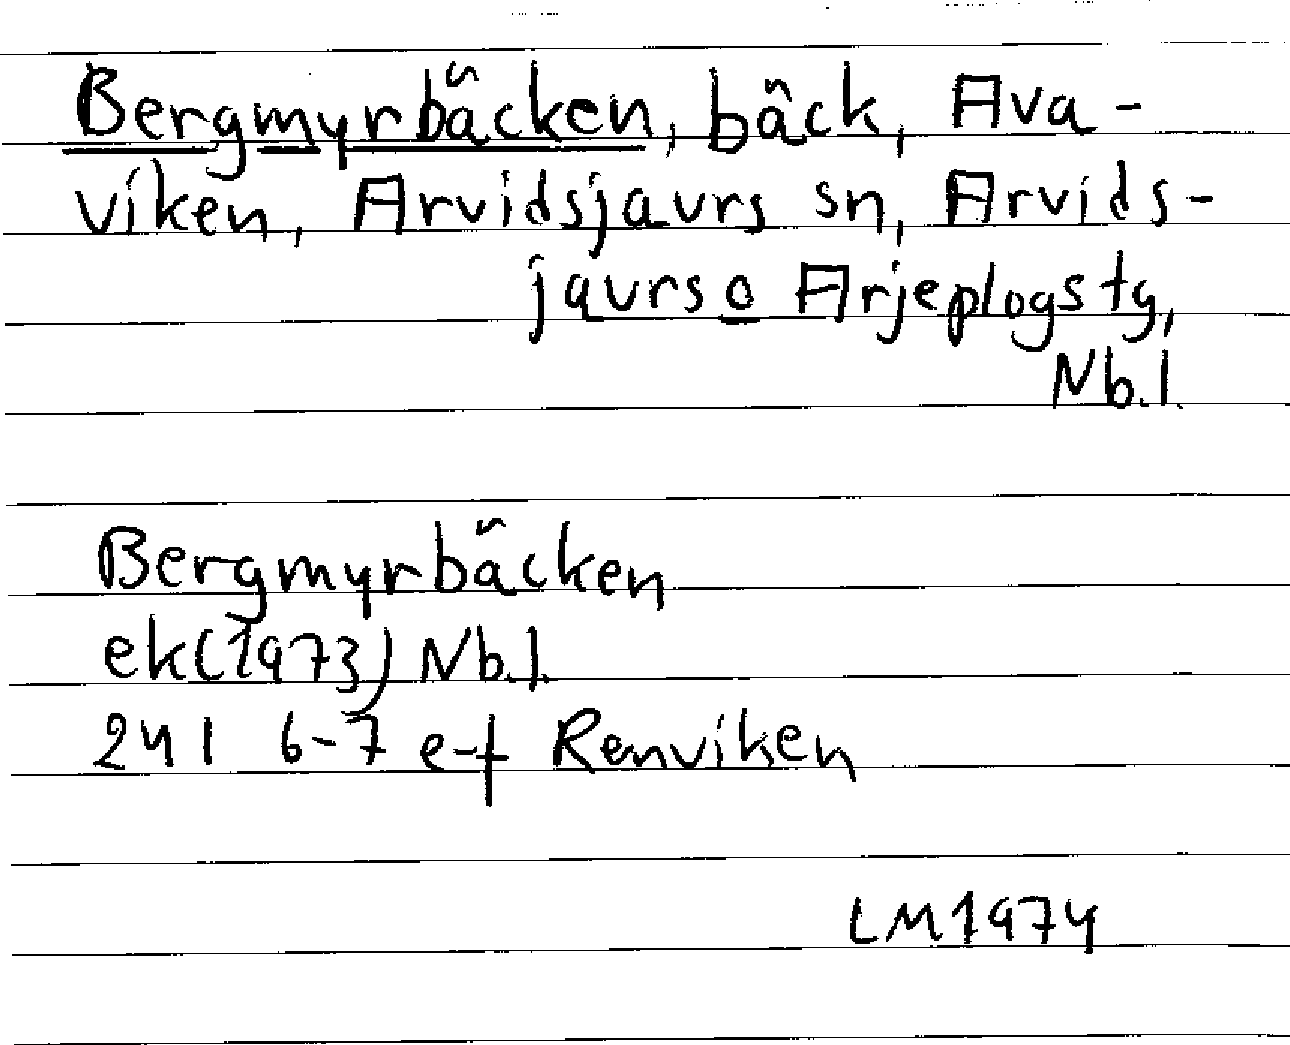 Bergmyrbäcken, bäck, Ava-
viken, Arvidsjaurs sn, Arvids-
jaurs o Arjeplogs tg,
Nb.l.
Bergmyrbäcken
ek(1973) Nb.l.
24I 6-7 e-f Renviken
LM1974